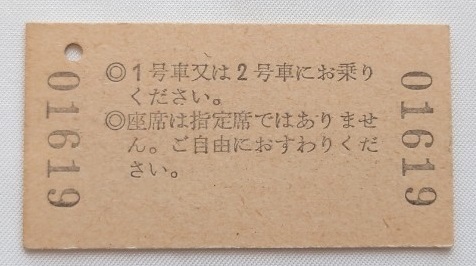 01619
◎1号車又は2号車にお乗り
ください。
◎座席は指定席ではありませ
ん。ご自由におすわりくだ
さい。
01619